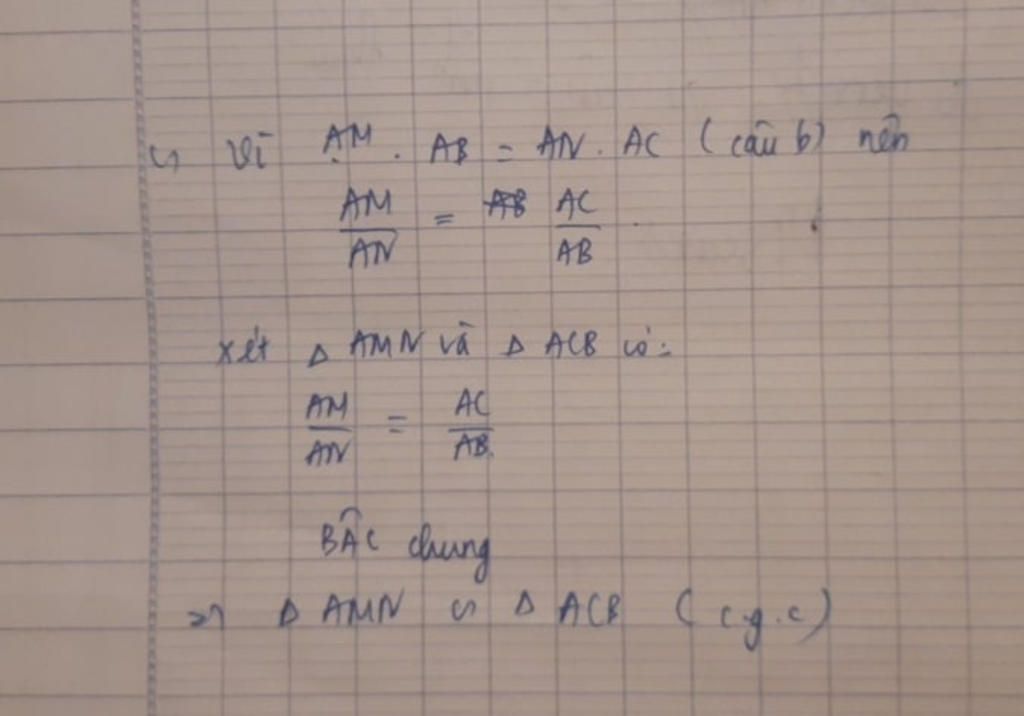 c) Vì AM . AB = AN . AC (câu b) nên
AM/AN = AC/AB
Xét Δ AMN và Δ ACB có:
AM/AN = AC/AB
BÂC chung
=> Δ AMN ∽ Δ ACB (c.g.c)